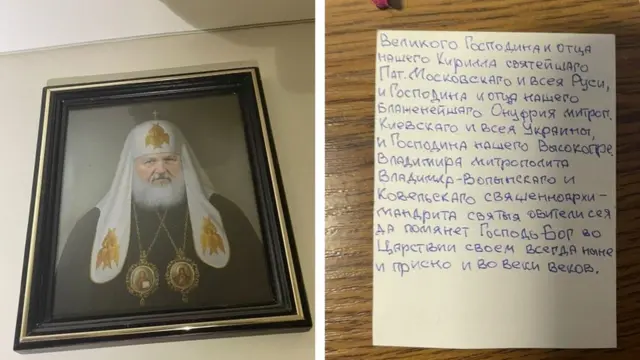 Великого Господина и отца
нашего Кирилла святейшаго
Пат. Московскаго и всея Руси,
и Господина и отца нашего
Блаженейшаго Онуфрия митроп.
Киевскаго и всея Украины,
и Господина нашего Высокопре.
Владимира митрополита
Владимир-Волынскаго и
Ковельского священноархи-
мандрита святыя обители сея
да помянет Господь Бог во
Царствии своем всегда ныне
и присно и во веки веков.